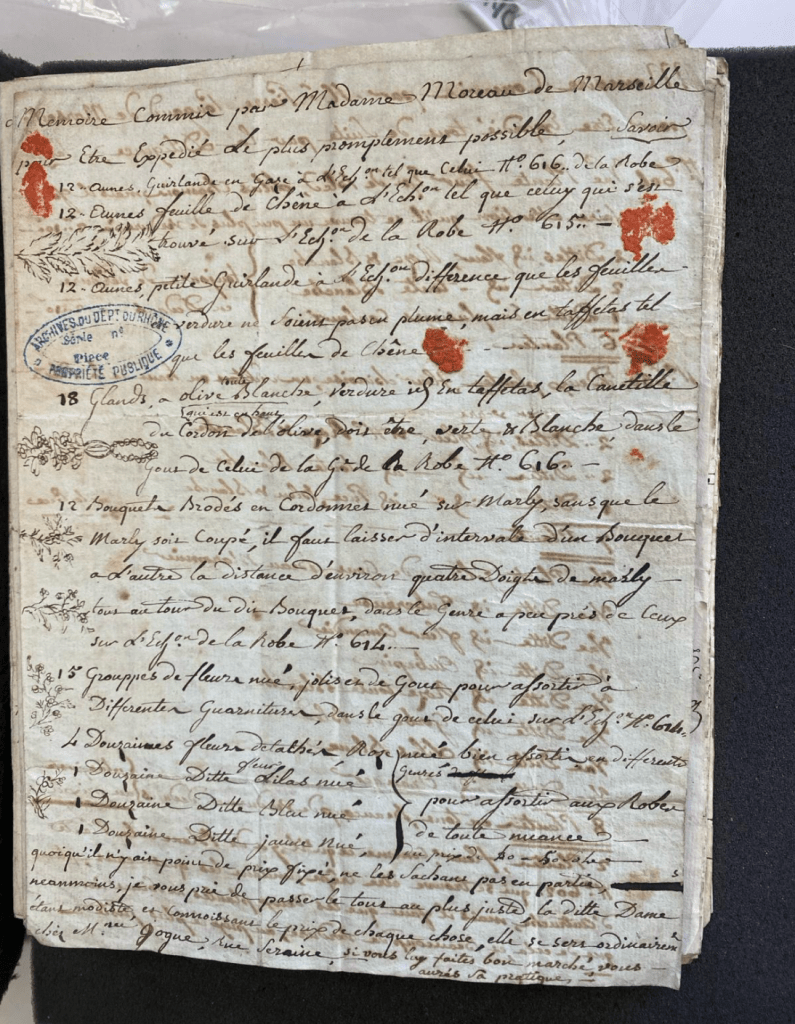 Memoire Commis par Madame Moreau de Marseille
pour Etre Expedié Le plus promptement possible, Savoir
12 - aunes, Guirlande en Gaze à L'Ech.on tel que Celui N.o 616.. de la Robe
12 - Aunes feuille de Chêne à L'Ech.on tel que celuy qui s'est
trouvé sur L'Ech.on de la Robe N.o 615.. —
12 - aunes, petite Guirlande à L'Ech.on difference que les feuilles
verdure ne Soient pas en plume, mais en taffetas tel
que les feuilles de Chêne —
ARCHIVES DU DÉPT DU RHÔNE
Série n°
Pièce
PROPRIÉTÉ PUBLIQUE
18 Glands, a olive toute Blanche, verdure en taffetas, la Canetille
qui est en haut
du Cordon de L'olive, doit être, verte & Blanche dans le
Gout de Celui de la G.e de la Robe N.o 616.. —
12 Bouquets Brodés en Cordonnet nué sur Marly, sans que le
Marly soit Coupé, il faut laisser d'intervale d'un Bouquet
a L'autre la distance d'environ quatre Doigts de marly —
tout au tour du dit Bouquet, dans le Genre a peu près de Ceux
sur L'Ech.on de la Robe N.o 614.. —
15 Grouppes de fleurs nué, jolis et de Gout pour assortir à
Differentes Guarnitures, dans le gout de celui sur L'Ech.on N.o 614..
4 Douzaines fleurs detachés Rose nué bien assortis en differents
Genres
1 Douzaine Ditte fleurs Lilas nué
1 Douzaine Ditte Bleu nué pour assortir aux Robes
1 Douzaine Ditte jaune nué, de toute nuance —
du prix de 40 - 50
quoiqu'il n'y ait point de prix fixé, ne les Sachant pas en partie,
neanmoins, je vous prie de passer le tout au plus juste, la ditte Dame
étant modiste, et connoissant le prix de chaque chose, elle se sert ordinairem.t
chés M. Gogue, Rue Seraine, si vous luy faites bon marché, vous —
aurés Sa pratique, —